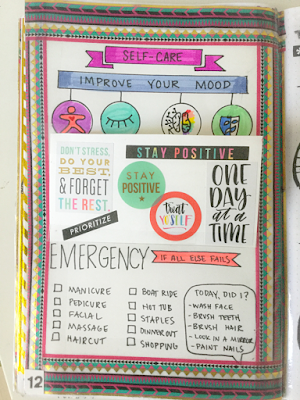 SELF-CARE
IMPROVE YOUR MOOD
DON'T STRESS,
DO YOUR
BEST,
& FORGET
THE REST.
PRIORITIZE
STAY POSITIVE
STAY
POSITIVE
treat
YO'SELF
ONE
DAY
at a
TIME
EMERGENCY
IF ALL ELSE FAILS
MANICURE
PEDICURE
FACIAL
MASSAGE
HAIRCUT
BOAT RIDE
HOT TUB
STAPLES
DINNER OUT
SHOPPING
TODAY, DID I?
- WASH FACE
- BRUSH TEETH
- BRUSH HAIR
- LOOK IN A MIRROR
- PAINT NAILS
12